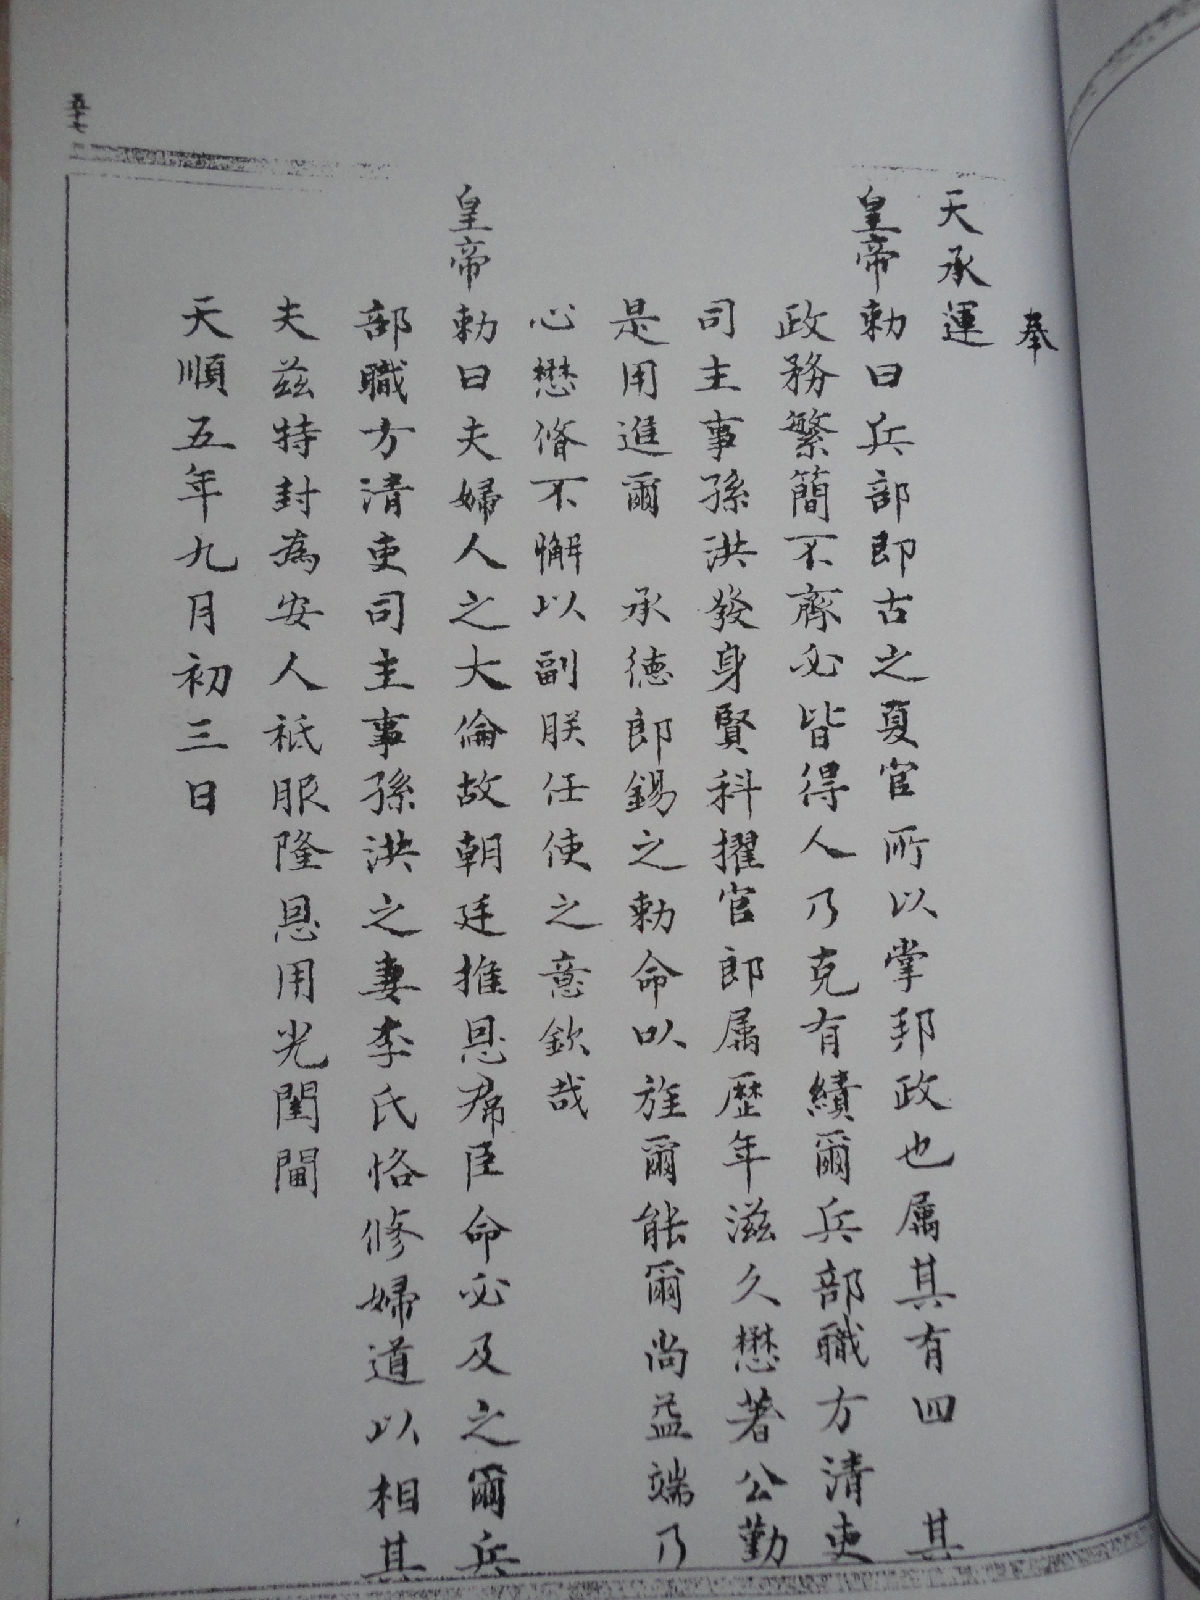 奉
天承運
皇帝勅曰兵部即古之夏官所以掌邦政也属其有四 其
政務繁簡不齊必皆得人乃克有績爾兵部職方清吏
司主事孫洪發身賢科擢官郎属歷年滋久懋著公勤
是用進爾 承德郎錫之勅命以旌爾能爾尚益端乃
心懋脩不懈以副朕任使之意欽哉
皇帝勅曰夫婦人之大倫故朝廷推恩羣臣命必及之爾兵
部職方清吏司主事孫洪之妻李氏恪修婦道以相其
夫茲特封為安人祗服隆恩用光閨閫
天順五年九月初三日
五十七